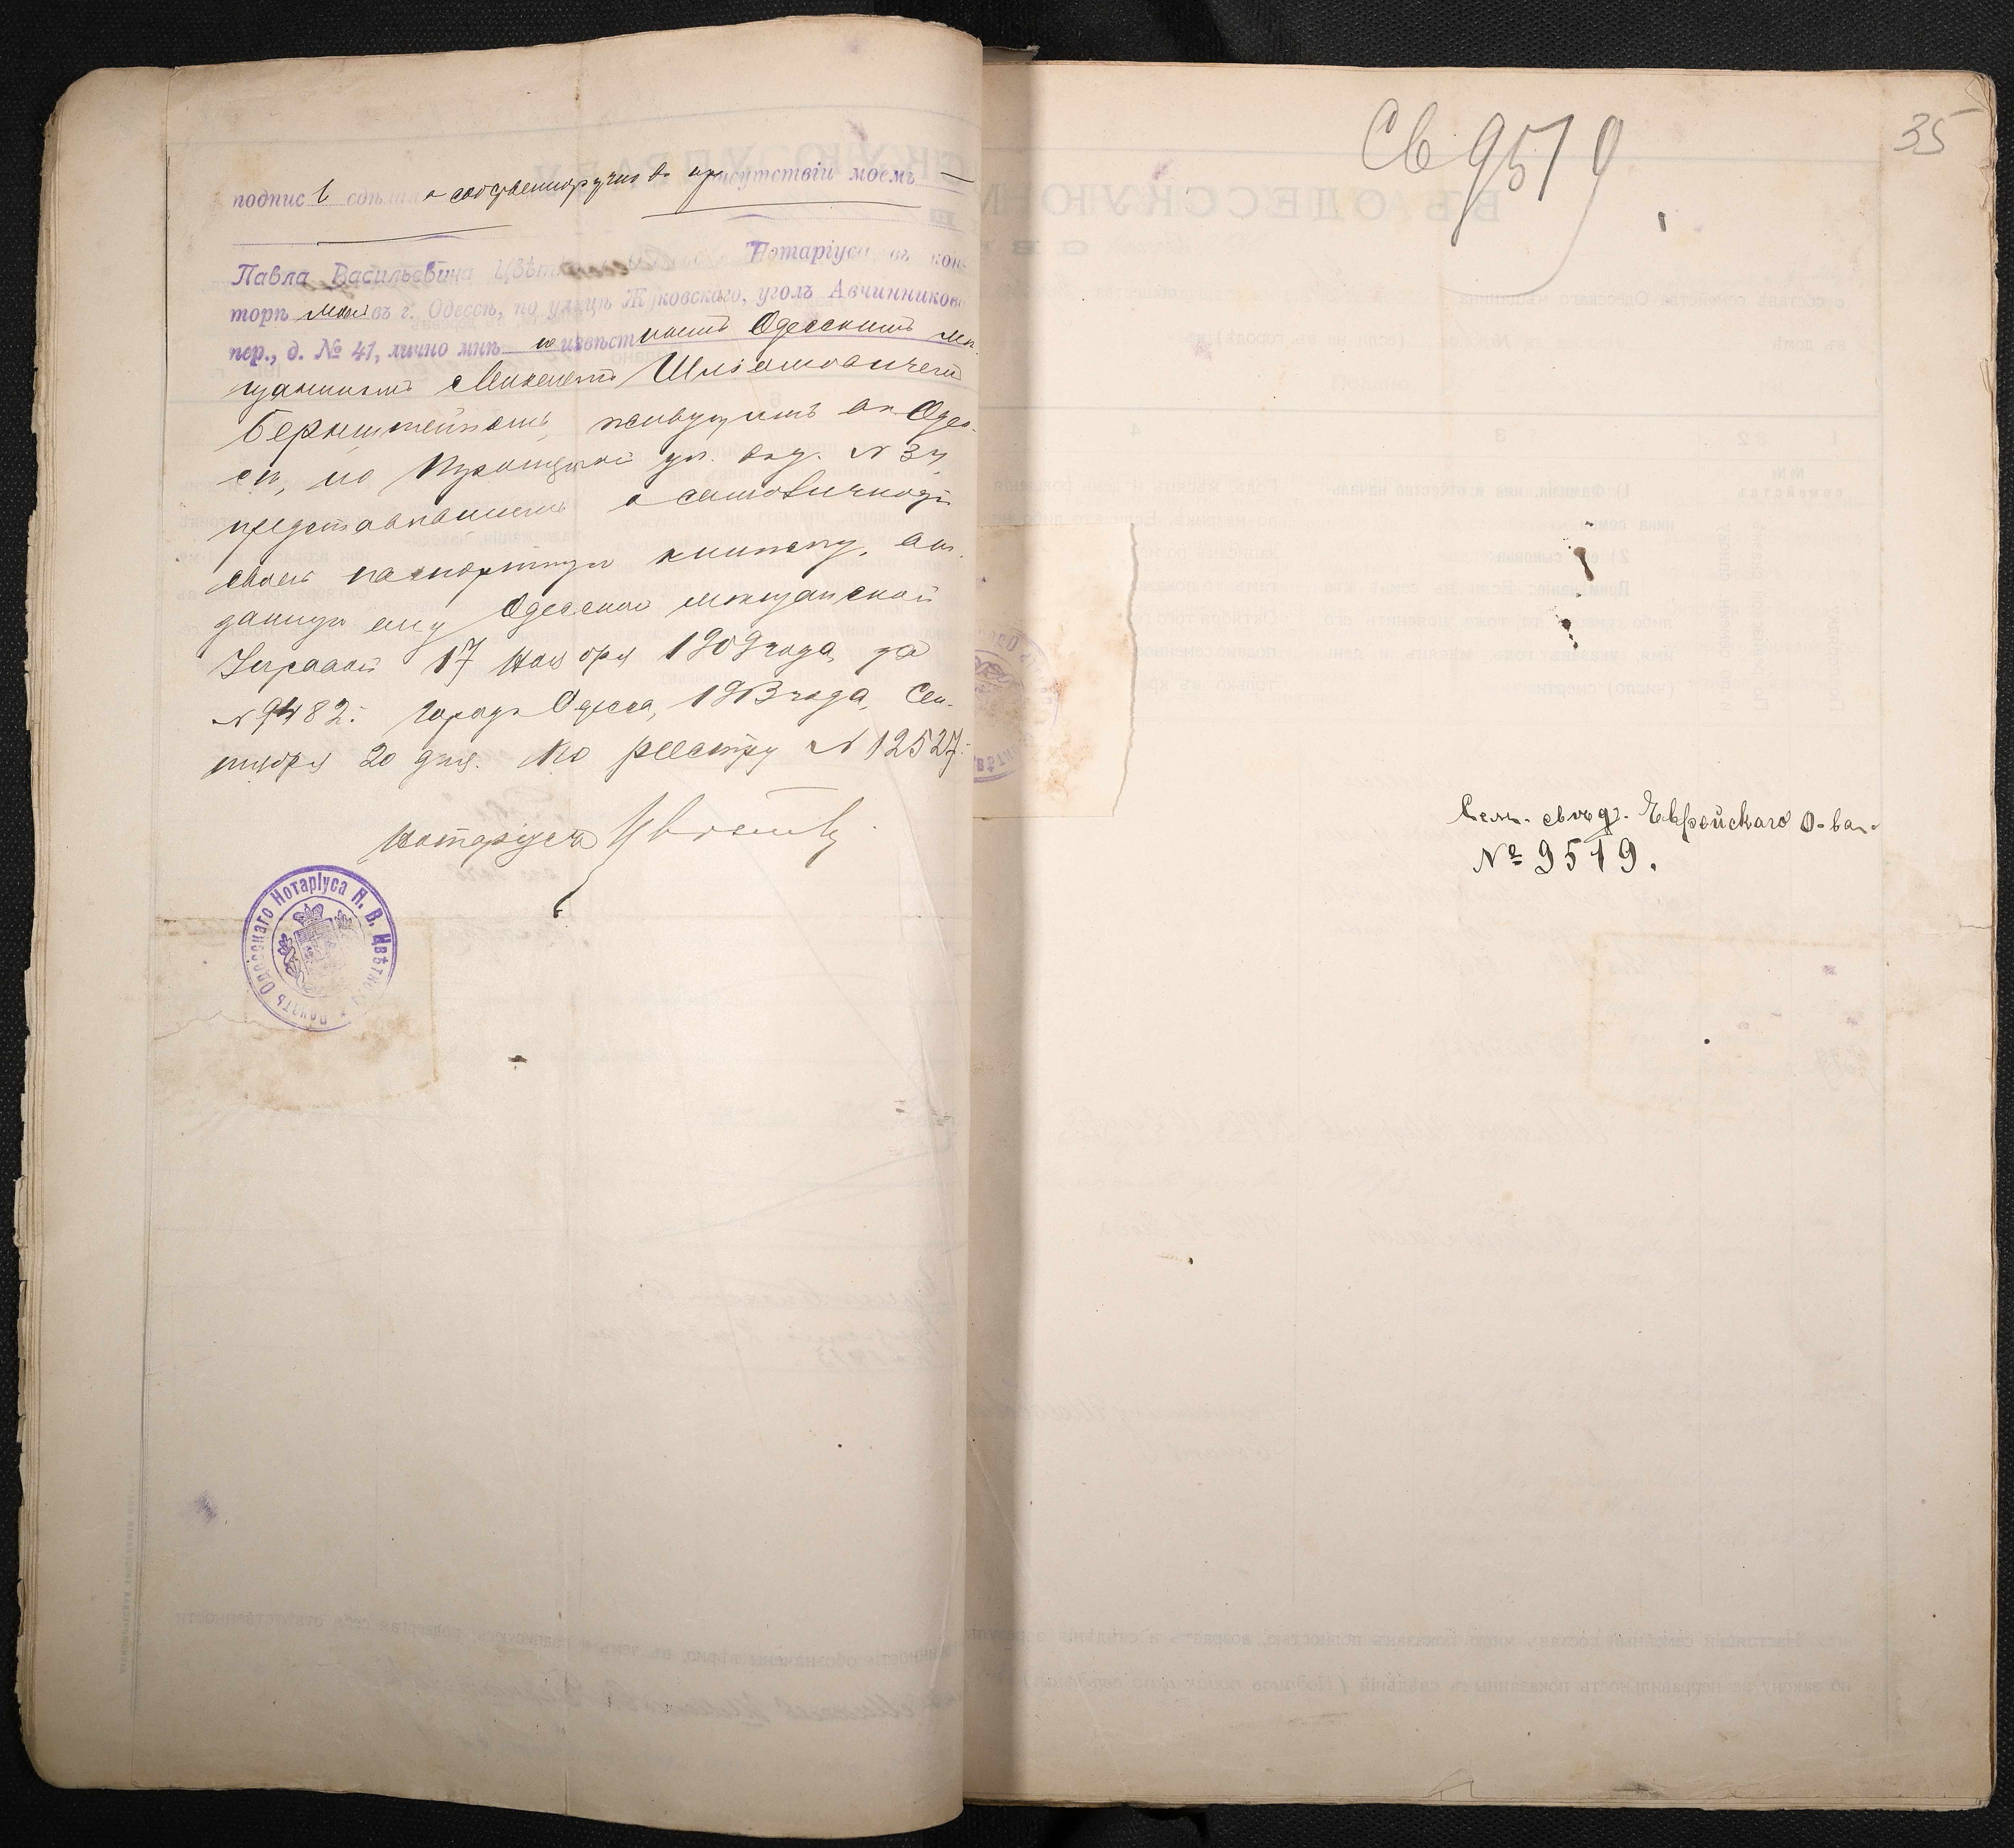 подпись сдѣлана собственноручно въ присутствіи моемъ
Павла Васильевича Цвѣткова Нотаріуса, въ кон-
торѣ моей въ г. Одессѣ, по улицѣ Жуковскаго, уголъ Авчинникова
пер., д. № 41, лично мнѣ неизвѣстнымъ Одесскимъ мѣ-
щаниномъ
Бернштейномъ, живущимъ въ Одес-
сѣ, по ул. въ д. № 34,
представившимъ о самоличности
своей паспортную книжку, вы-
данную ему Одесской мѣщанской
Управой 17 Ноября 1909 года, за
№ 9482. Городъ Одесса, 1913 года, Сен-
тября 20 дня. По реестру № 12527.
Нотаріусъ Цвѣтковъ
Печать Одесскаго Нотаріуса П. В. Цвѣткова
Св 9519
35
Сем. свѣд. Еврейскаго О-ва.
№ 9519.